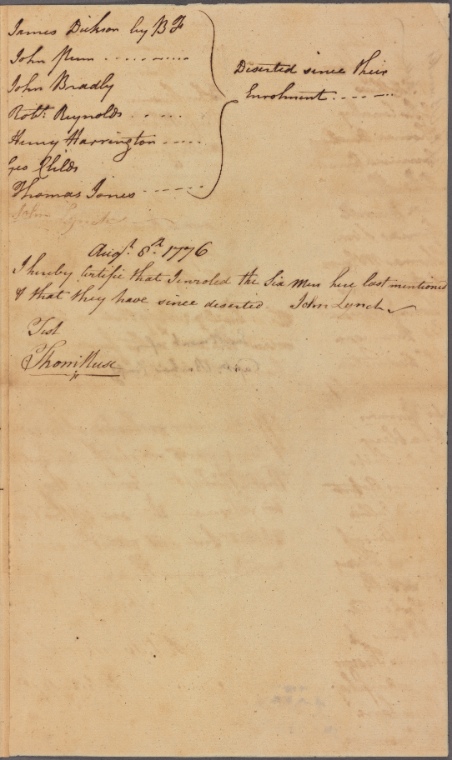 James Dickson by B F
John Pum
Deserted since their
John Bradby
Enrolment
Robt. Reynolds
Henry Harrington
Geo Childs
Thomas Jones
John Lynch
Augst. 8th. 1776
I hereby Certifie that I inroled the Six Men here last mentioned
& that they have since deserted John Lynch
Test
Thoms Muse